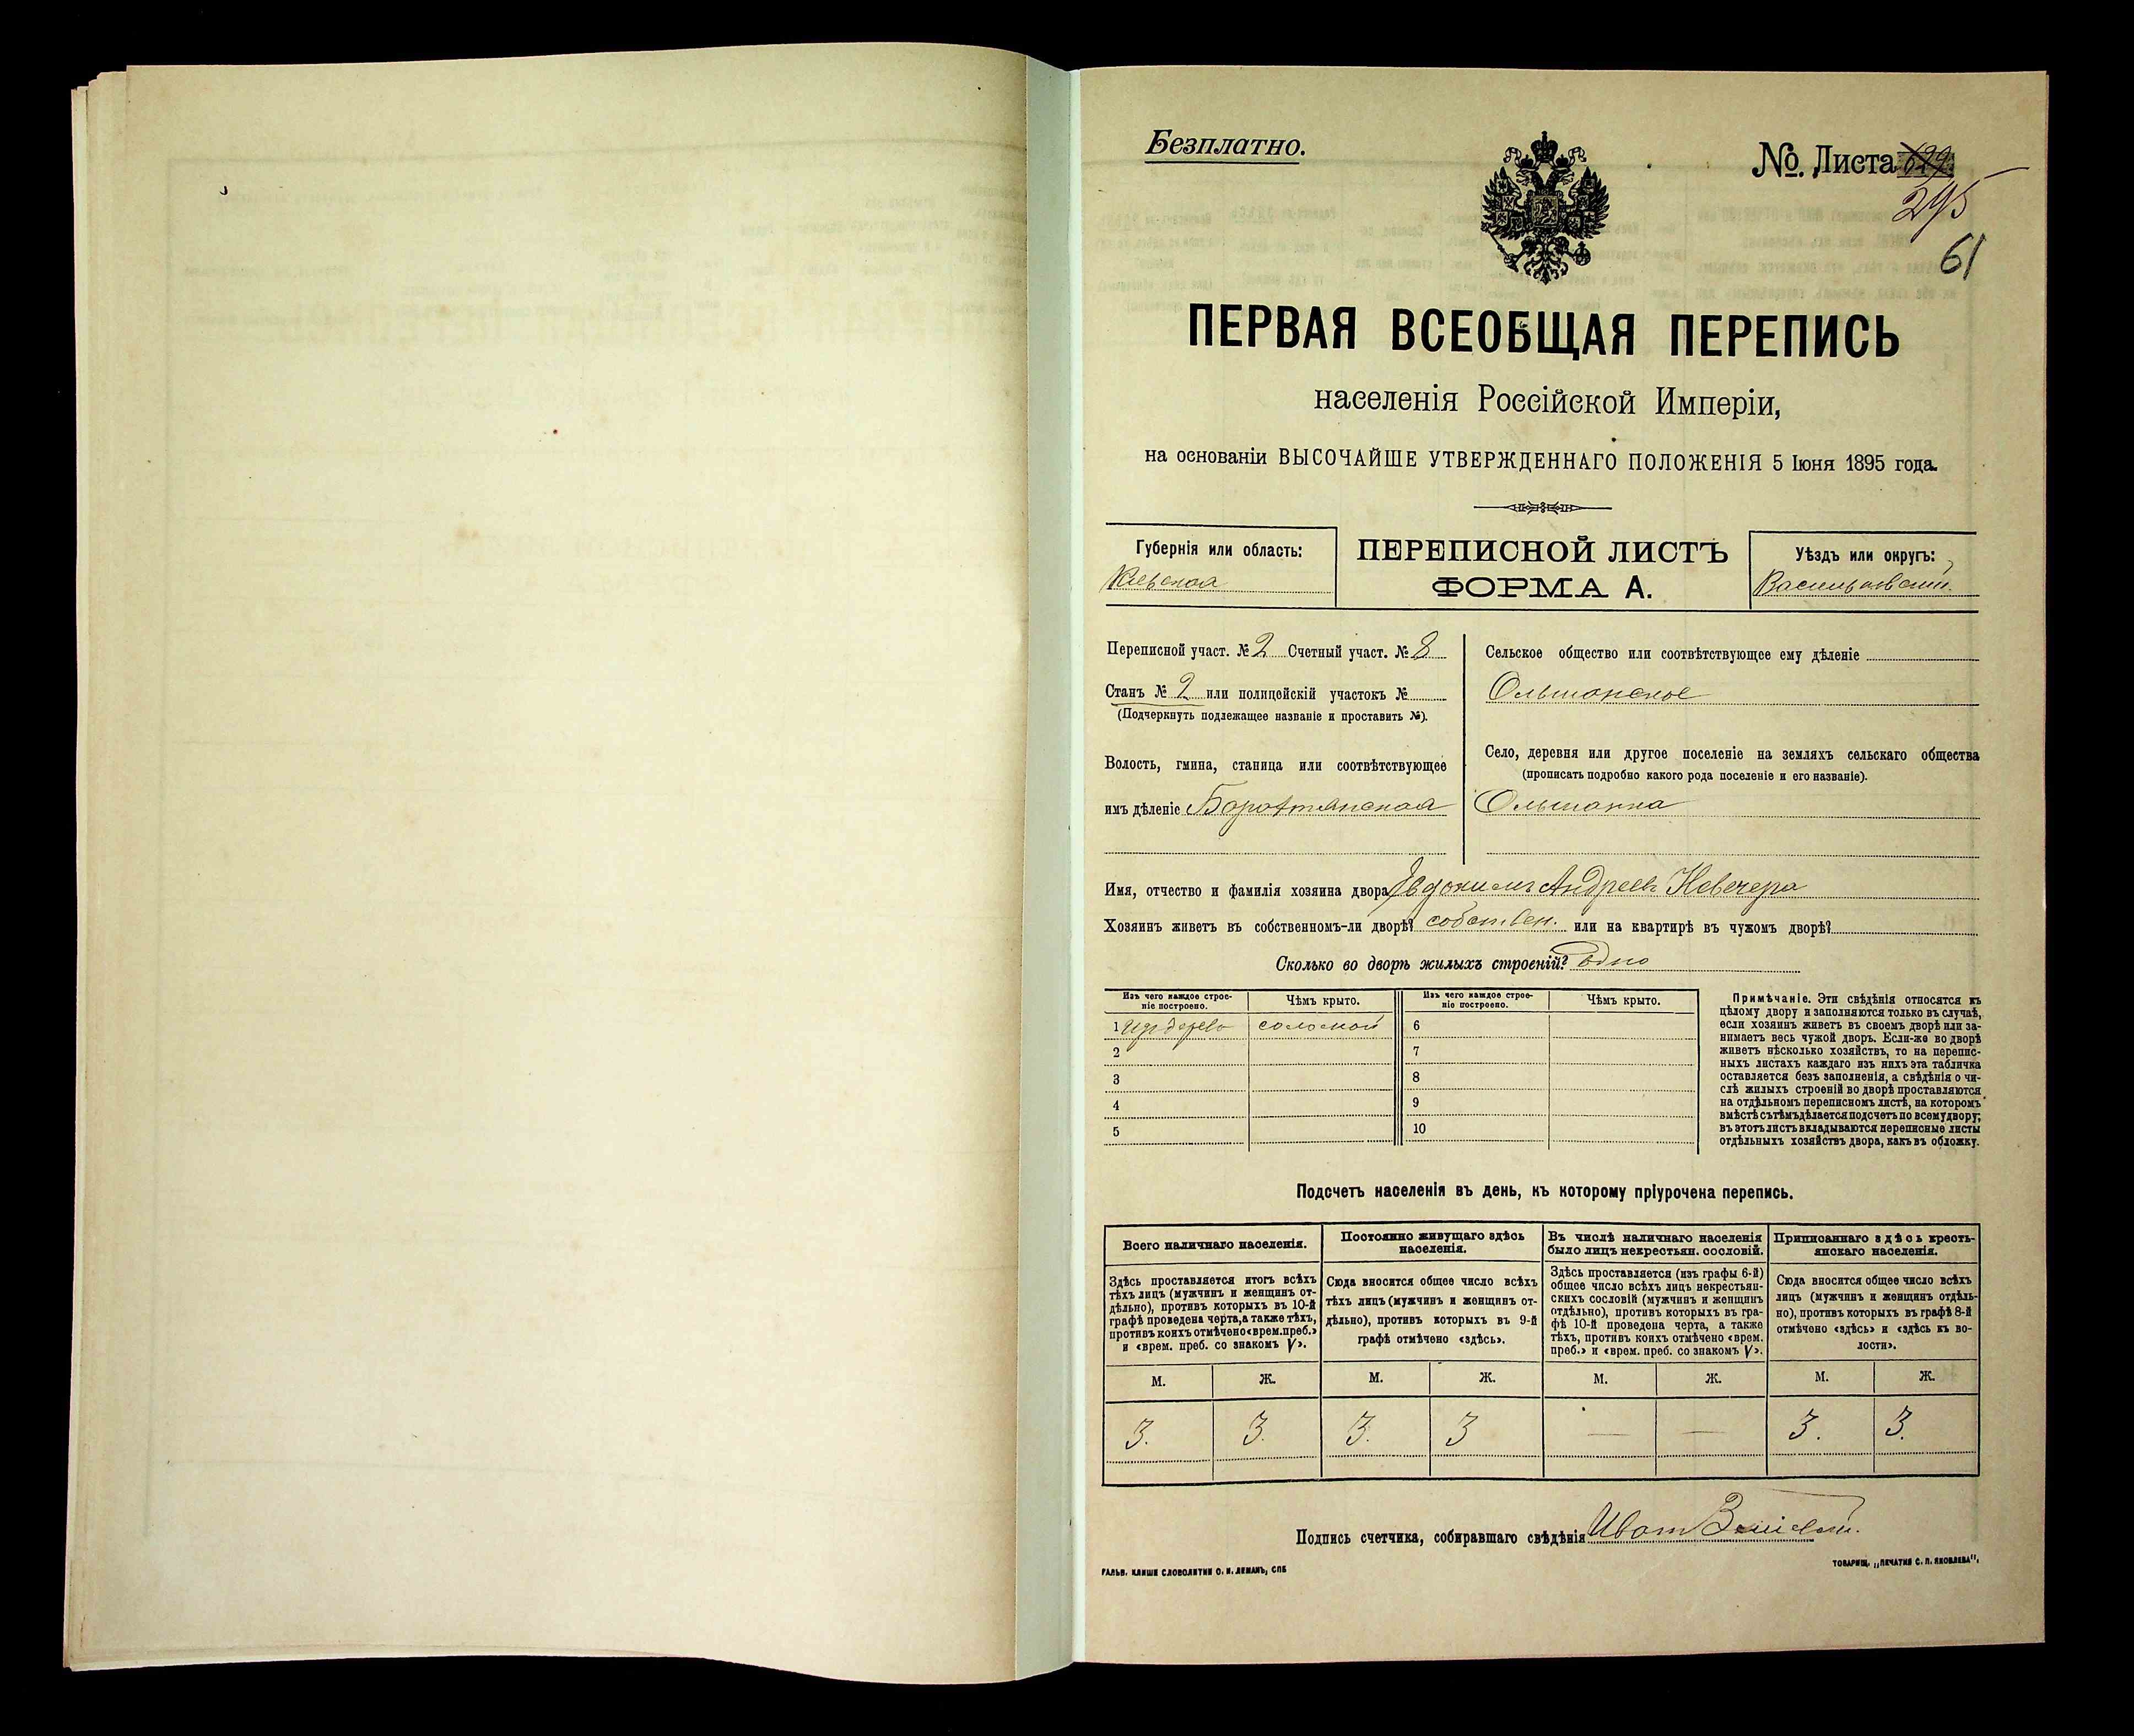 Безплатно.
№. Листа
295
61
ПЕРВАЯ ВСЕОБЩАЯ ПЕРЕПИСЬ
населенія Россійской Имперіи,
на основаніи ВЫСОЧАЙШЕ УТВЕРЖДЕННАГО ПОЛОЖЕНІЯ 5 Іюня 1895 года.
Губернія или область:
Кіевская
ПЕРЕПИСНОЙ ЛИСТЪ
ФОРМА А.
Уѣздъ или округъ:
Васильковскій.
Переписной участ. № 2 Счетный участ. № 8
Станъ № 2 или полицейскій участокъ №
(Подчеркнуть подлежащее названіе и проставить №).
Волость, гмина, станица или соотвѣтствующее
имъ дѣленіе
Сельское общество или соотвѣтствующее ему дѣленіе
Ольшанское
Село, деревня или другое поселеніе на земляхъ сельскаго общества
(прописать подробно какого рода поселеніе и его названіе).
Ольшанка
Имя, отчество и фамилія хозяина двора Евдокимъ Андреевъ Невечеря
Хозяинъ живетъ въ собственномъ-ли дворѣ? собствен. или на квартирѣ въ чужомъ дворѣ?
Сколько во дворѣ жилыхъ строеній? одно
Изъ чего каждое строе-
ніе построено.
Чѣмъ крыто.
Изъ чего каждое строе-
ніе построено.
Чѣмъ крыто.
1 изъ дерева соломой 6
2 7
3 8
4 9
5 10
Примѣчаніе. Эти свѣдѣнія относятся къ
цѣлому двору и заполняются только въ случаѣ,
если хозяинъ живетъ въ своемъ дворѣ или за-
нимаетъ весь чужой дворъ. Если-же во дворѣ
живетъ нѣсколько хозяйствъ, то на перепис-
ныхъ листахъ каждаго изъ нихъ эта табличка
оставляется безъ заполненія, а свѣдѣнія о чи-
слѣ жилыхъ строеній во дворѣ проставляются
на отдѣльномъ переписномъ листѣ, на которомъ
вмѣстѣ съ тѣмъ дѣлается подсчетъ по всему двору;
въ этотъ листъ вкладываются переписные листы
отдѣльныхъ хозяйствъ двора, какъ въ обложку.
Подсчетъ населенія въ день, къ которому пріурочена перепись.
Всего наличнаго населенія.
Здѣсь проставляется итогъ всѣхъ
тѣхъ лицъ (мужчинъ и женщинъ от-
дѣльно), противъ которыхъ въ 10-й
графѣ проведена черта, а также тѣхъ,
противъ коихъ отмѣчено «врем. преб.»
и «врем. преб. со знакомъ V».
Постоянно живущаго здѣсь
населенія.
Сюда вносится общее число всѣхъ
тѣхъ лицъ (мужчинъ и женщинъ от-
дѣльно), противъ которыхъ въ 9-й
графѣ отмѣчено «здѣсь».
Въ числѣ наличнаго населенія
было лицъ некрестьян. сословій.
Здѣсь проставляется (изъ графы 6-й)
общее число всѣхъ лицъ некрестьян-
скихъ сословій (мужчинъ и женщинъ
отдѣльно), противъ которыхъ въ гра-
фѣ 10-й проведена черта, а также
тѣхъ, противъ коихъ отмѣчено «врем.
преб.» и «врем. преб. со знакомъ V».
Приписаннаго здѣсь кресть-
янскаго населенія.
Сюда вносится общее число всѣхъ
лицъ (мужчинъ и женщинъ отдѣль-
но), противъ которыхъ въ графѣ 8-й
отмѣчено «здѣсь» и «здѣсь къ во-
лости».
М. Ж. М. Ж. М. Ж. М. Ж.
3. 3. 3. 3 — — 3. 3.
Подпись счетчика, собиравшаго свѣдѣнія
ГАЛЬВ. КЛИШЕ СЛОВОЛИТНИ О. И. ЛЕМАНЪ, СПБ
ТОВАРИЩ. „ПЕЧАТНЯ С. П. ЯКОВЛЕВА".